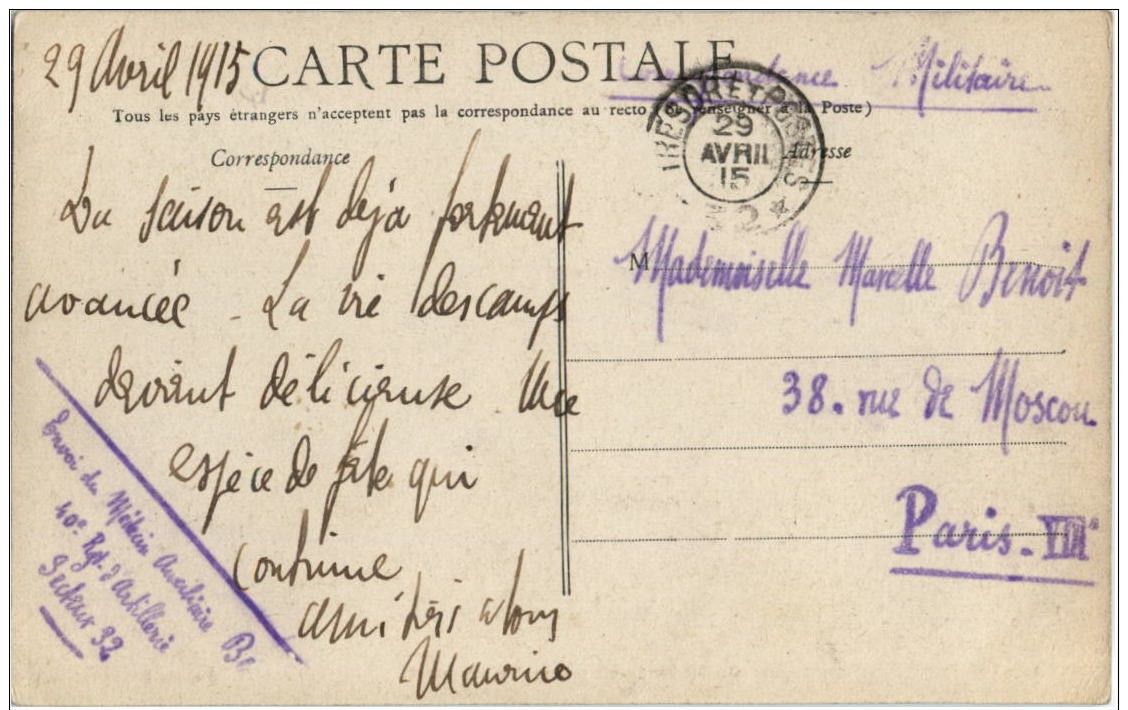 29 Avril 1915
CARTE POSTALE
Correspondance Militaire
Tous les pays étrangers n'acceptent pas la correspondance au recto (Se renseigner à la Poste)
TRESOR ET POSTES
29
AVRIL
15
32
Correspondance
La saison est déjà fortement
avancée - La vie des camps
devient délicieuse Une
espèce de fête qui
continue
amitiés à tous
Maurice
Envoi du Médecin Auxiliaire Be
40e Rgt d'Artillerie
Secteur 32
Adresse
M Mademoiselle Marcelle Benoit
38. rue de Moscou
Paris - VIIIe